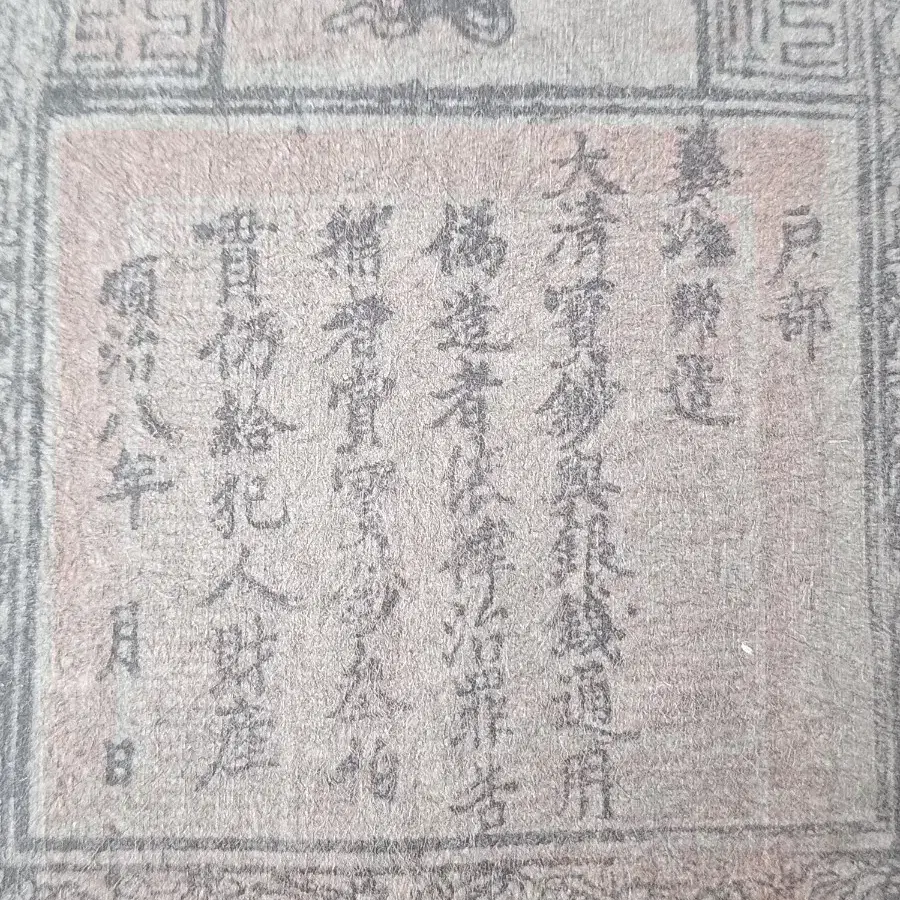 戶部
奏准 造
大清寶鈔與銀錢通用
偽造者依律治罪告
捕者賞 鈔 伯
貫仍給犯人財產
順治八年 月 日